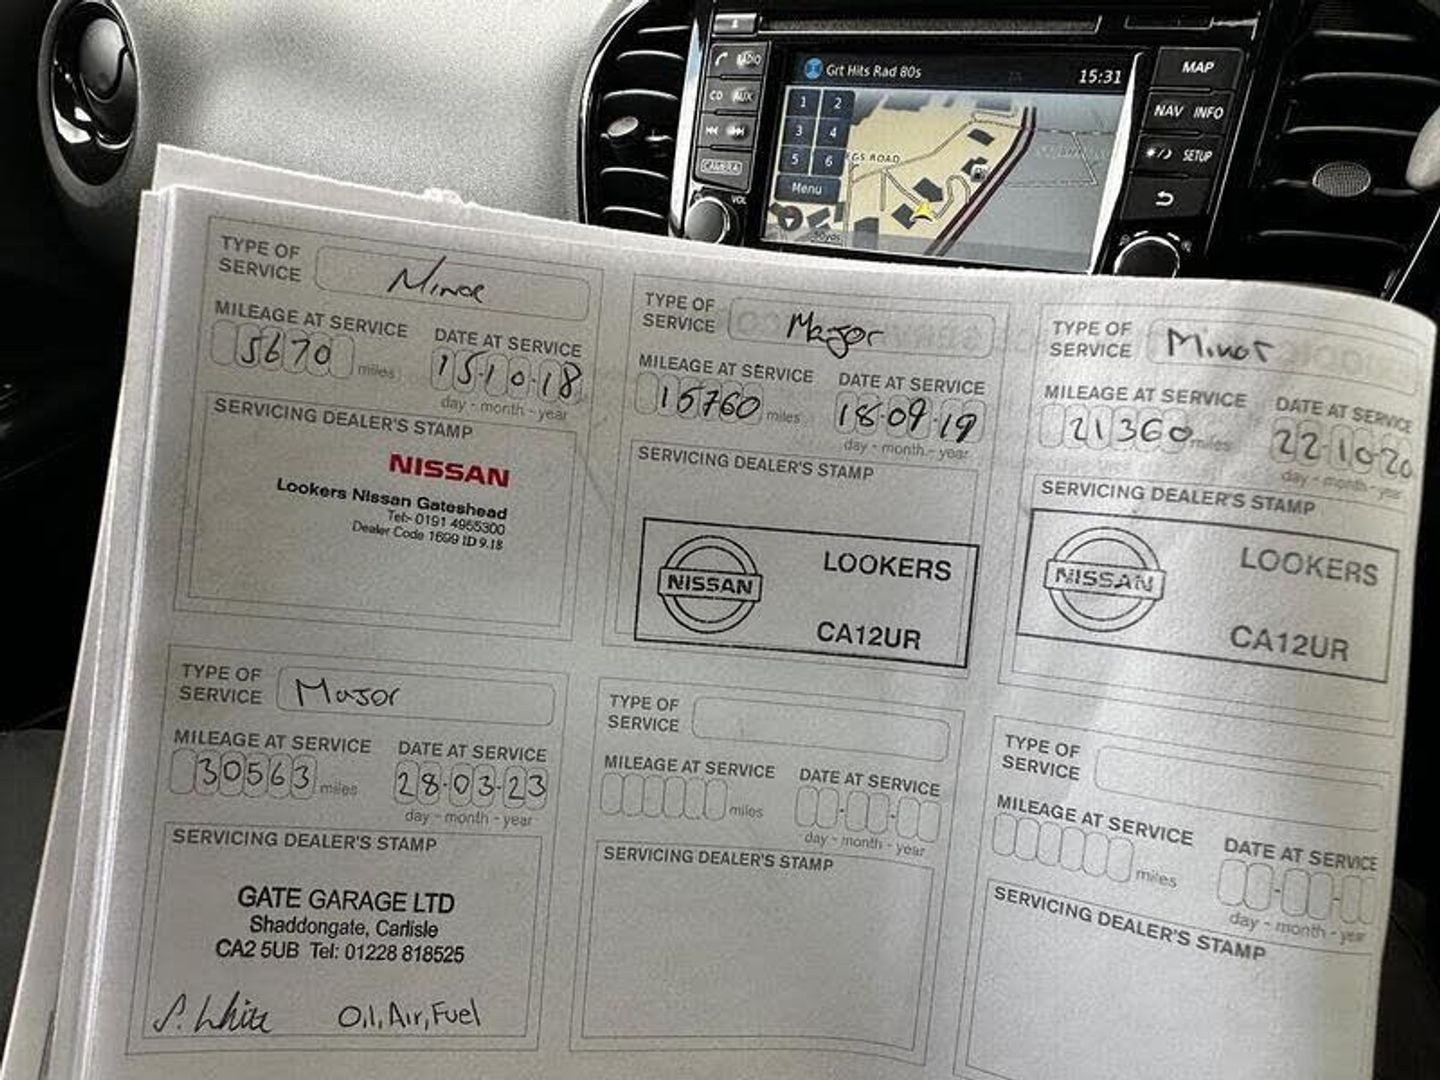 Grt Hits Rad 80s
15:31
1 2
3 4
5 6
Menu
GS ROAD
CD AUX
CAMERA
VOL
MAP
NAV INFO
SETUP
TYPE OF
SERVICE
Minor
MILEAGE AT SERVICE
5670 miles
DATE AT SERVICE
15-10-18
day - month - year
SERVICING DEALER'S STAMP
NISSAN
Lookers Nissan Gateshead
Tel:- 0191 4955300
Dealer Code 1699 ID 9.18
TYPE OF
SERVICE
Major
MILEAGE AT SERVICE
15760 miles
DATE AT SERVICE
18-09-19
day - month - year
SERVICING DEALER'S STAMP
NISSAN
LOOKERS
CA12UR
TYPE OF
SERVICE
Minor
MILEAGE AT SERVICE
21360 miles
DATE AT SERVICE
22-10-20
day - month - year
SERVICING DEALER'S STAMP
NISSAN
LOOKERS
CA12UR
TYPE OF
SERVICE
Major
MILEAGE AT SERVICE
30563 miles
DATE AT SERVICE
28-03-23
day - month - year
SERVICING DEALER'S STAMP
GATE GARAGE LTD
Shaddongate, Carlisle
CA2 5UB Tel: 01228 818525
S. White
Oil, Air, Fuel
TYPE OF
SERVICE
MILEAGE AT SERVICE
miles
DATE AT SERVICE
day - month - year
SERVICING DEALER'S STAMP
TYPE OF
SERVICE
MILEAGE AT SERVICE
miles
DATE AT SERVICE
day - month - year
SERVICING DEALER'S STAMP